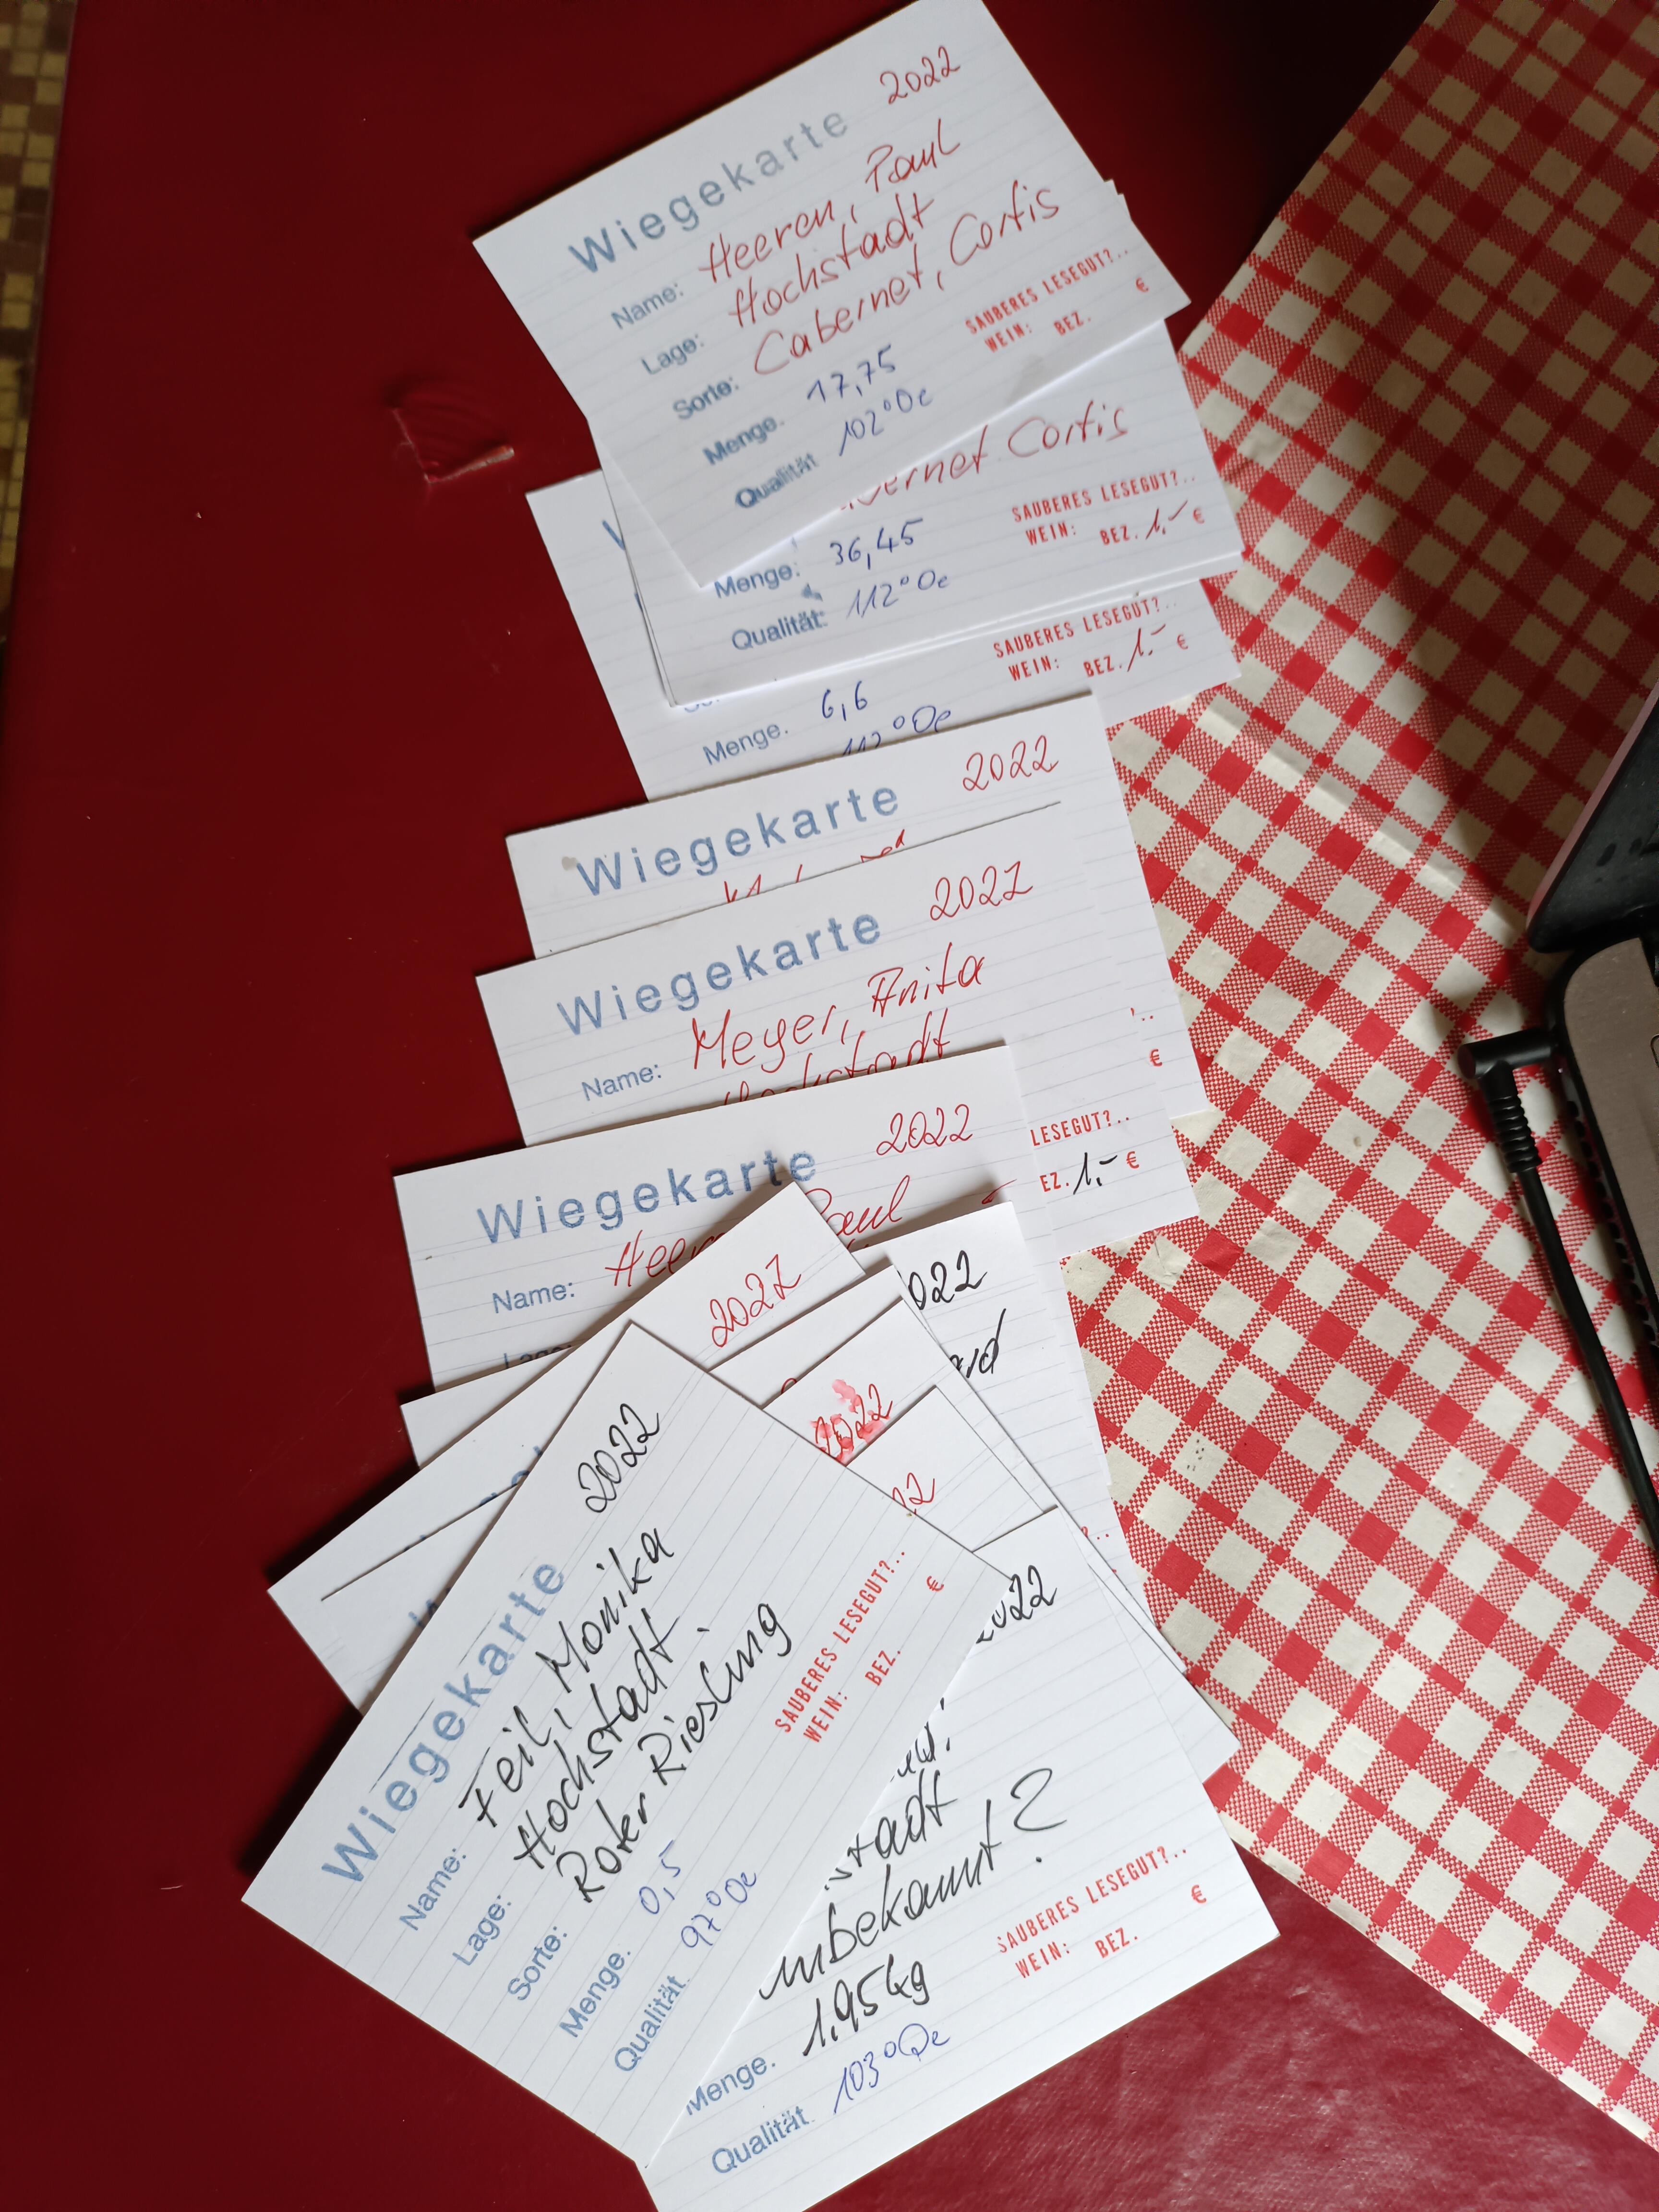 Wiegekarte 2022
Name: Heeren, Paul
Lage: Hochstadt
Sorte: Cabernet, Cortis
Menge. 17,75
Qualität 102°Oe
SAUBERES LESEGUT?..
WEIN: BEZ. €
Cortis
Menge: 36,45
Qualität: 112°Oe
SAUBERES LESEGUT?..
WEIN: BEZ. 1.- €
Menge. 6,6
112°Oe
SAUBERES LESEGUT?..
WEIN: BEZ. 1.- €
Wiegekarte 2022
Wiegekarte 2022
Name: Meyer, Anita
Hochstadt
€
LESEGUT?..
EZ. 1.- €
Wiegekarte 2022
Name: Paul
2022
022
2022
22
Wiegekarte 2022
Name: Feil, Monika
Lage: Hochstadt
Sorte: Roter Riesling
Menge. 0,5
Qualität. 97°Oe
SAUBERES LESEGUT?..
WEIN: BEZ. €
2022
stadt
unbekannt?
Menge. 1,95kg
Qualität. 103°Oe
SAUBERES LESEGUT?..
WEIN: BEZ. €